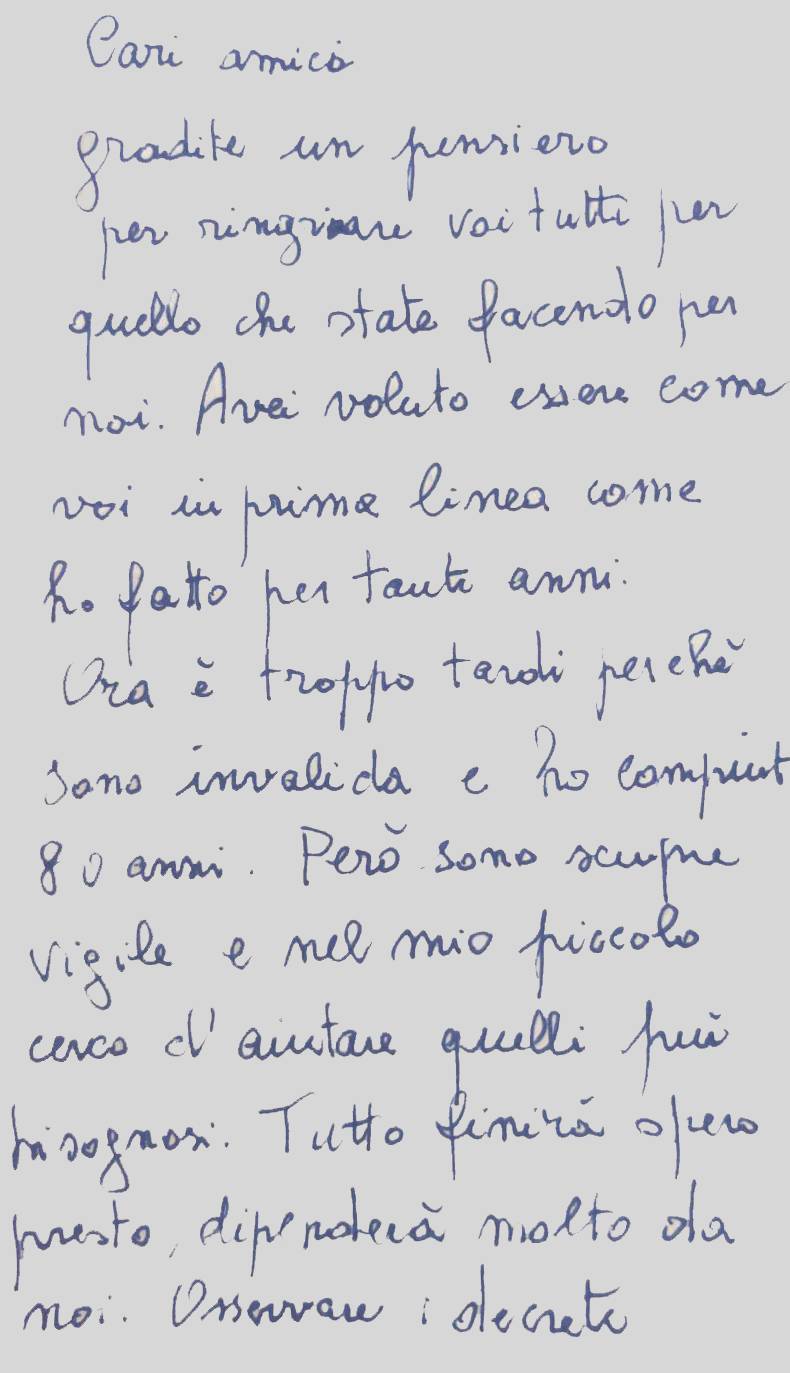 Cari amici
gradite un pensiero
per ringraziare voi tutti per
quello che state facendo per
noi. Avei voluto essere come
voi in prima linea come
ho fatto per tanti anni.
Ora è troppo tardi perchè
sono invalida e ho compiut
80 anni. Però sono sempre
vigile e nel mio piccolo
cerco d'aiutare quelli più
bisognosi. Tutto finirà spero
presto, dipenderà molto da
noi. Osservare i decreti